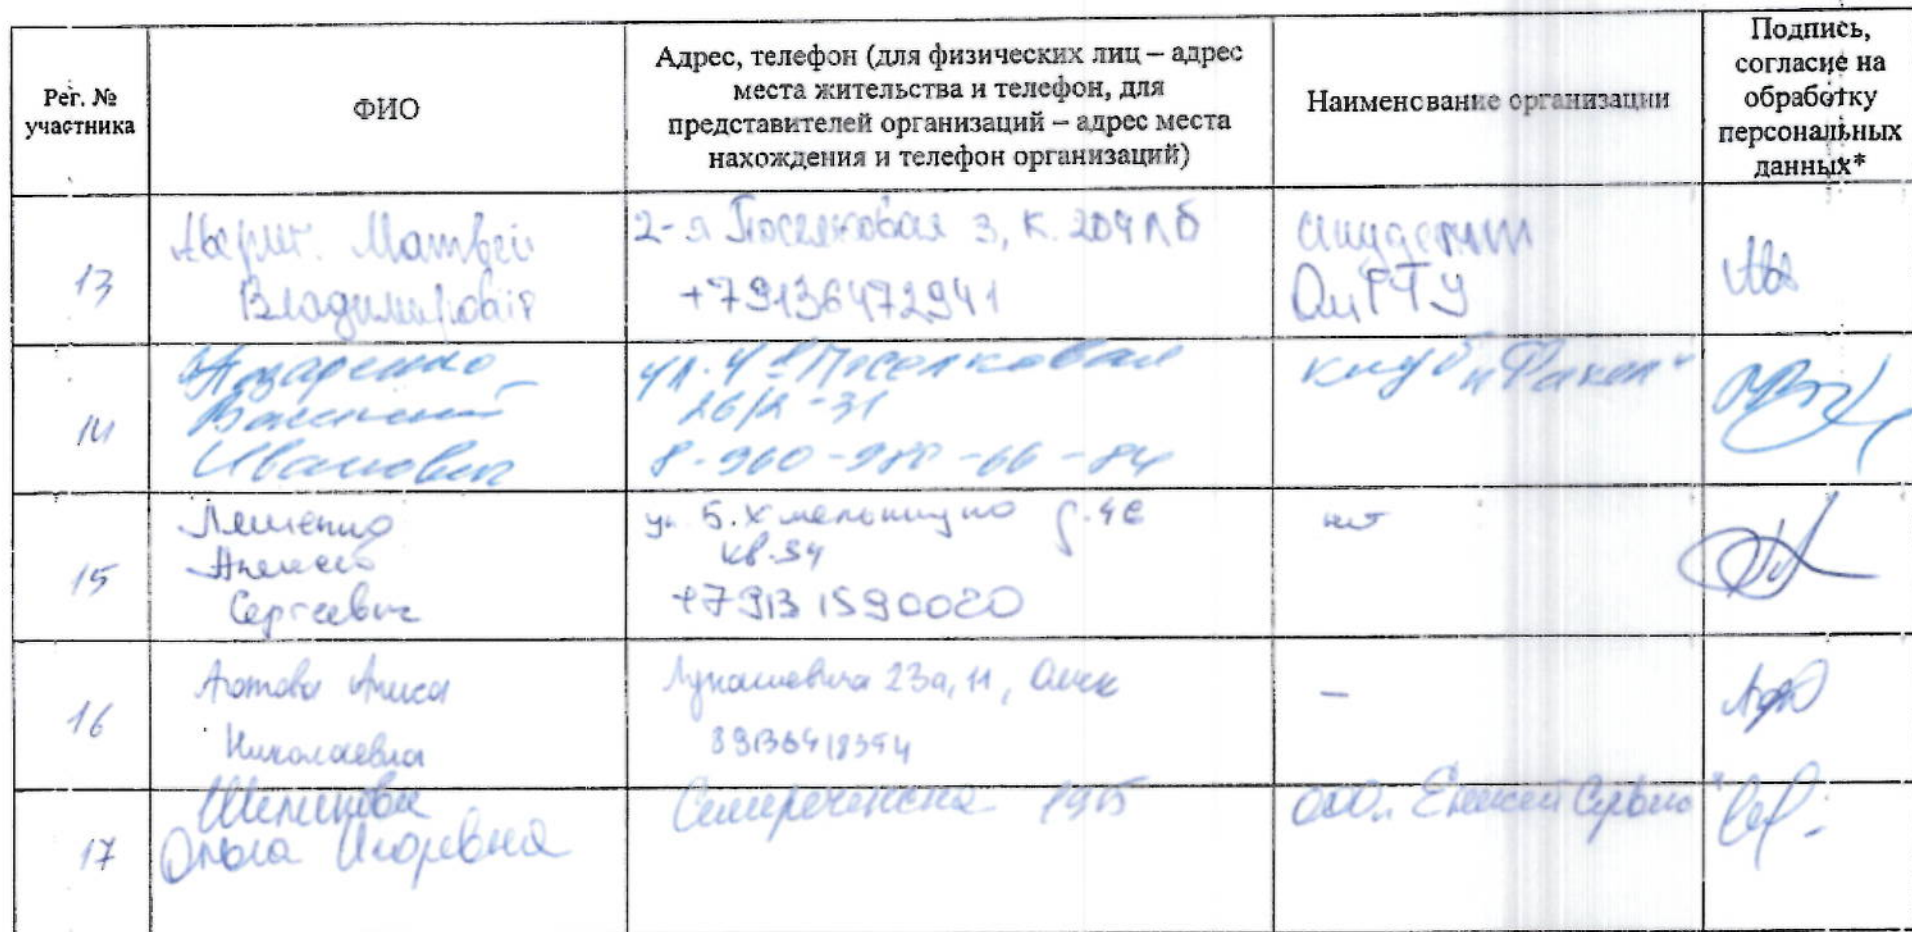 Рег. №
участника
ФИО
Адрес, телефон (для физических лиц – адрес
места жительства и телефон, для
представителей организаций – адрес места
нахождения и телефон организаций)
Наименование организации
Подпись,
согласие на
обработку
персональных
данных*
13
Матвей
Владимирович
2-я Поселковая 3, к. 204
+79136472941
студент
ОмГТУ
14
Азаренко
Василий
Иванович
ул. 4-я Поселковая
26/2 -31
8-960-980-66-84
клуб "Факел"
15
Алексей
Сергеевич
ул Б. Хмельницкого д.4
кв.
+79131590020
нет
16
Алиса
Николаевна
Лукашевича 23а, 11, Омск
89136418354
–
17
Ольга Игоревна
Семиреченская
ООО "Енисей Сервис"